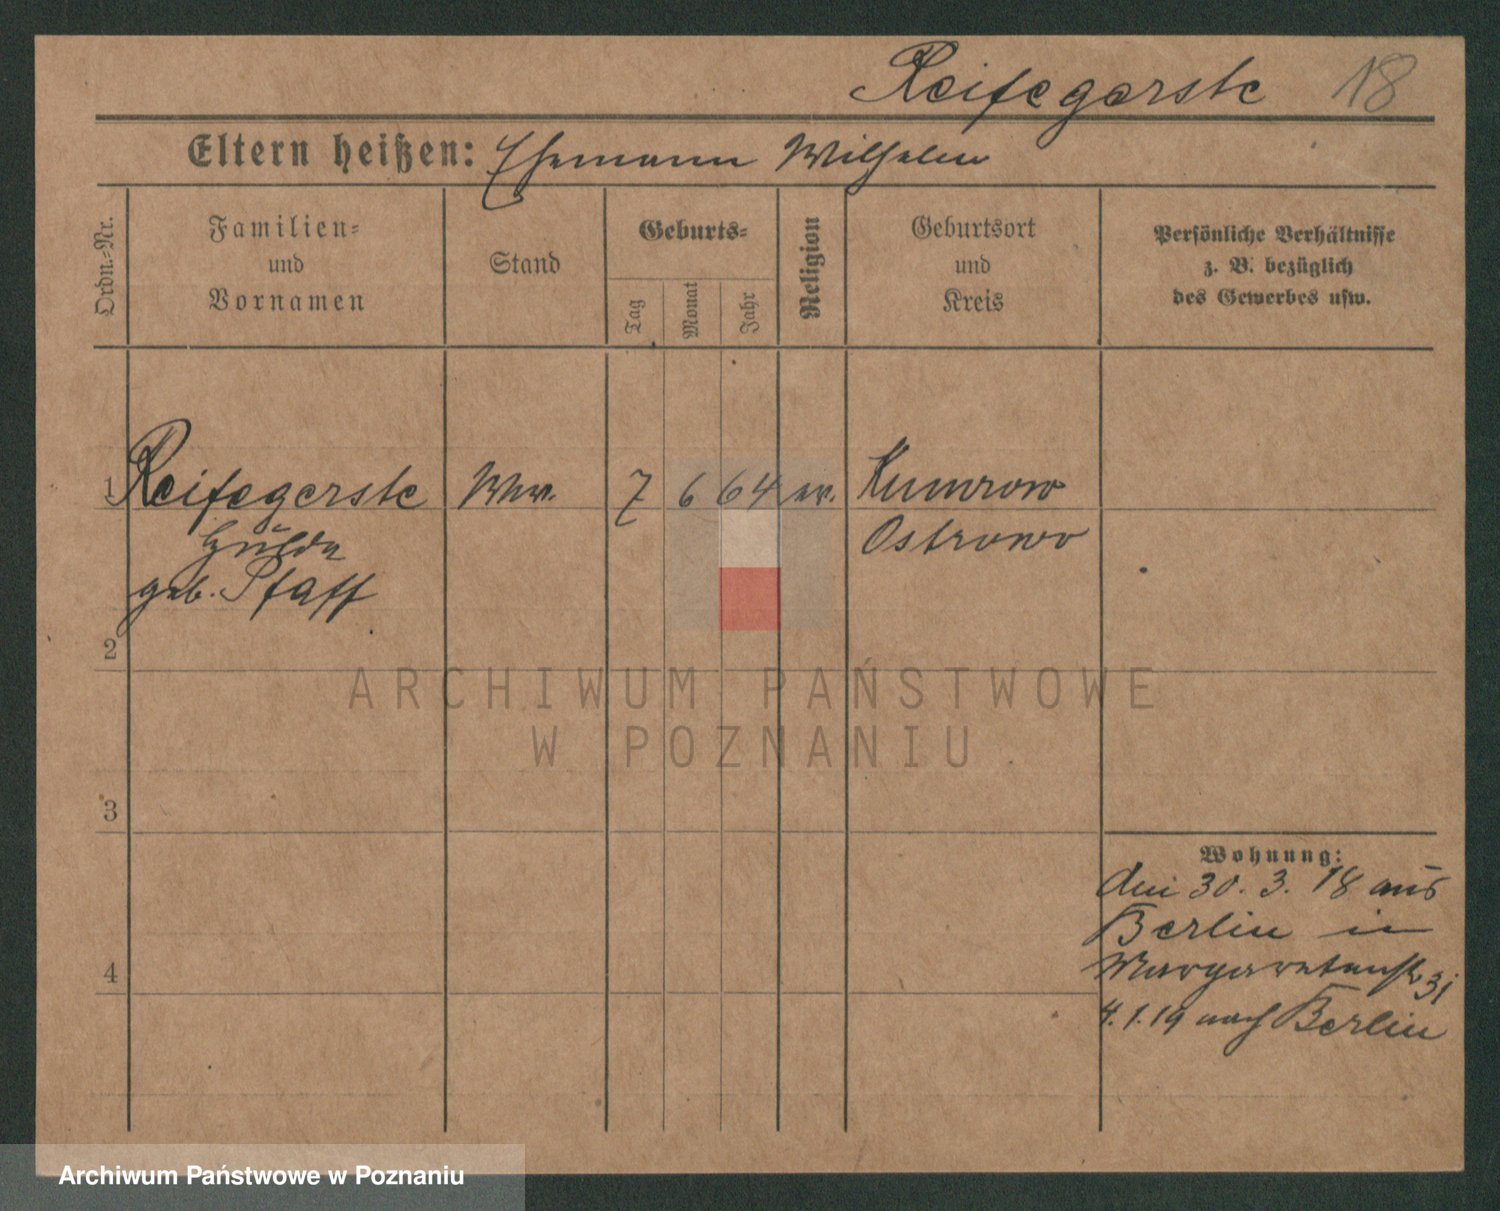 Reifegerste 18
Eltern heißen: Ehemann Wilhelm
Ordn.-Nr.
Familien-
und
Vornamen
Stand
Geburts-
Tag
Monat
Jahr
Religion
Geburtsort
und
Kreis
Persönliche Verhältnisse
z. B. bezüglich
des Gewerbes usw.
1 Reifegerste Wwe. 7 6 64 ev. Kumrow
Hulda Ostrowo
geb. Pfaff
2
ARCHIWUM PAŃSTWOWE
W POZNANIU
3
Wohnung:
den 30. 3. 18 aus
Berlin in
4 Margaretenstr 31
4.1.19 nach Berlin
Archiwum Państwowe w Poznaniu